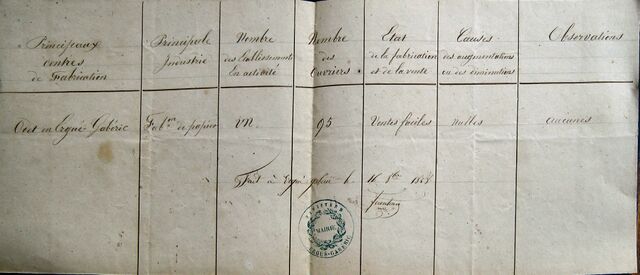 Principaux
centres
de Fabrication
Principale
Industrie
Nombre
des Etablissements
En activité
Nombre
des
Ouvriers
Etat
de la fabrication
et de la vente
Causes
des augmentations
ou des diminutions
Observations
Odet en Ergué Gabéric
Fab.on de papier
UN
95
Ventes faciles
Nulles
aucunes
Fait à Ergué
le 16
MAIRIE
ERGUÉ-GABÉRIC
FINISTÈRE